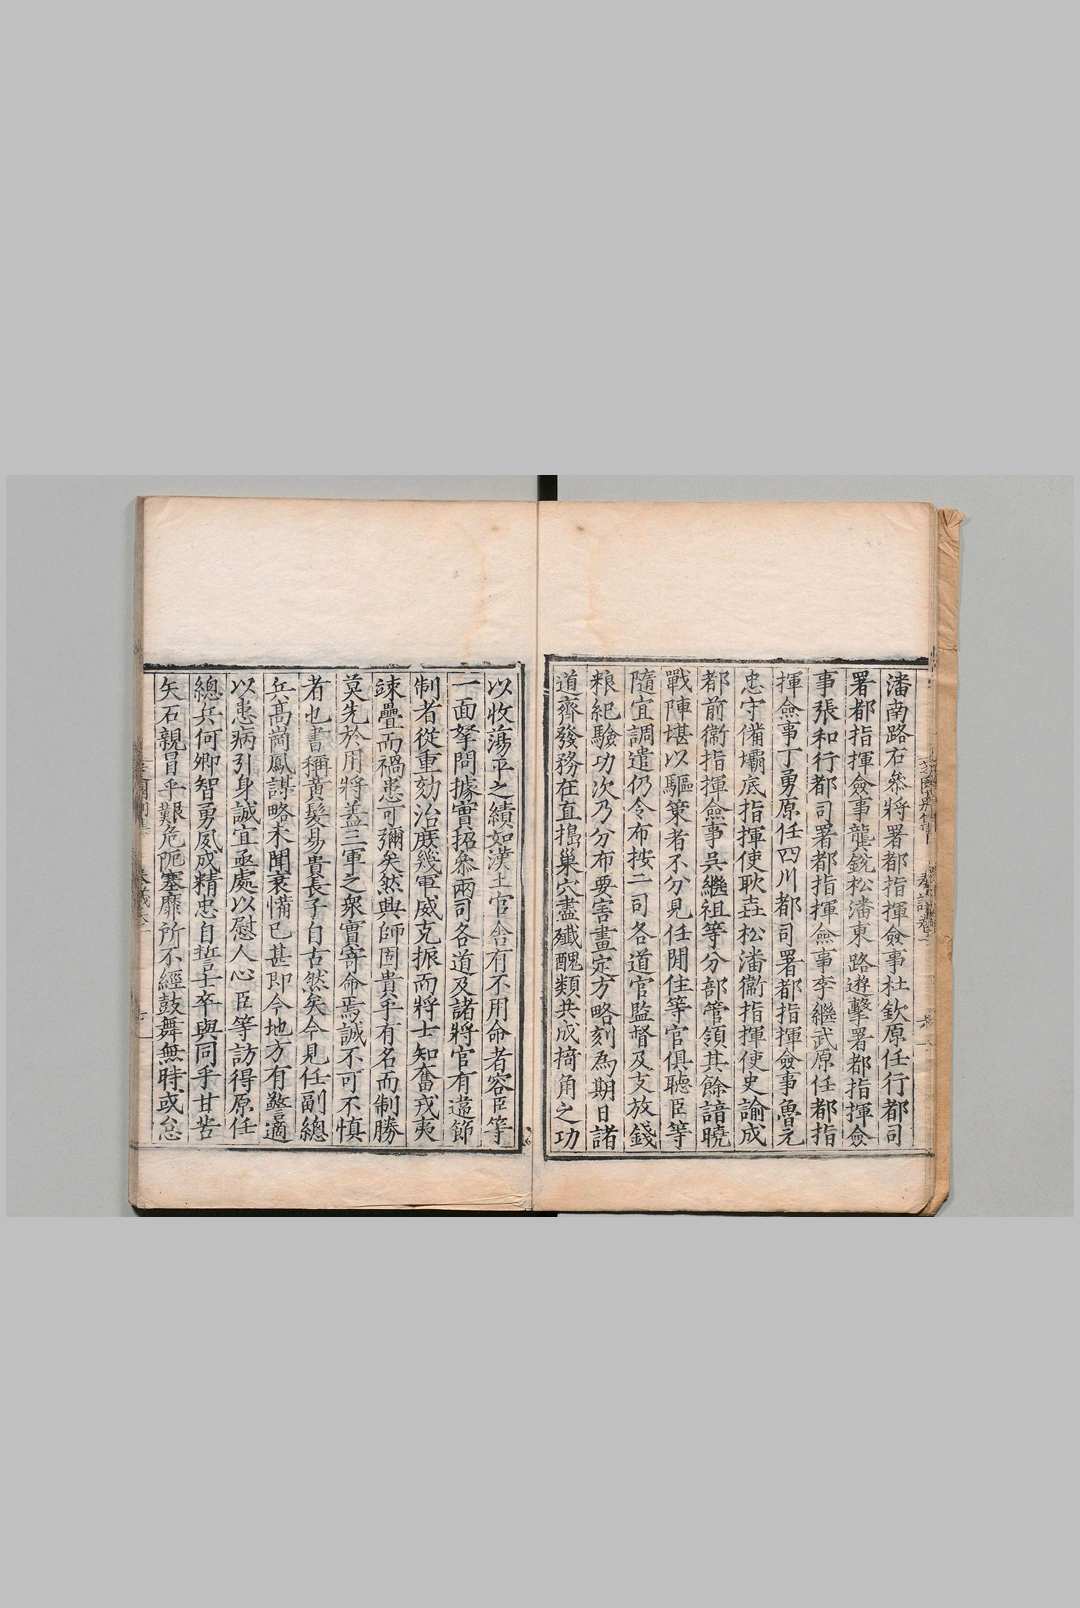 潘南路右叅將署都指揮僉事杜欽原任行都司
署都指揮僉事龔銳松潘東路遊擊署都指揮僉
事張和行都司署都指揮僉事李繼武原任都指
揮僉事丁勇原任四川都司署都指揮僉事魯元
忠守備壩底指揮使耿垚松潘衞指揮使史諭成
都前衞指揮僉事吳繼祖等分部管領其餘諳曉
戰陣堪以驅策者不分見任閒住等官俱聽臣等
隨宜調遣仍令布按二司各道官監督及支放錢
粮紀驗功次乃分布要害畫定方略刻為期日諸
道齊發務在直搗巢穴盡殲醜類共成掎角之功
以收蕩平之績如漢土官舍有不用命者容臣等
一面拏問據實招叅兩司各道及諸將官有違節
制者從重効治庶幾軍威克振而將士知奮戎夷
竦疊而禍患可彌矣然興師固貴乎有名而制勝
莫先於用將盖三軍之衆實寄命焉誠不可不慎
者也書稱黃髮易貴長子自古然矣今見任副總
兵高崗鳳謀略未聞衰憊已甚即今地方有警適
以患病引身誠宜亟處以慰人心臣等訪得原任
總兵何卿智勇夙成精忠自誓士卒與同乎甘苦
矢石親冒乎艱危阨塞靡所不經鼓舞無時或怠